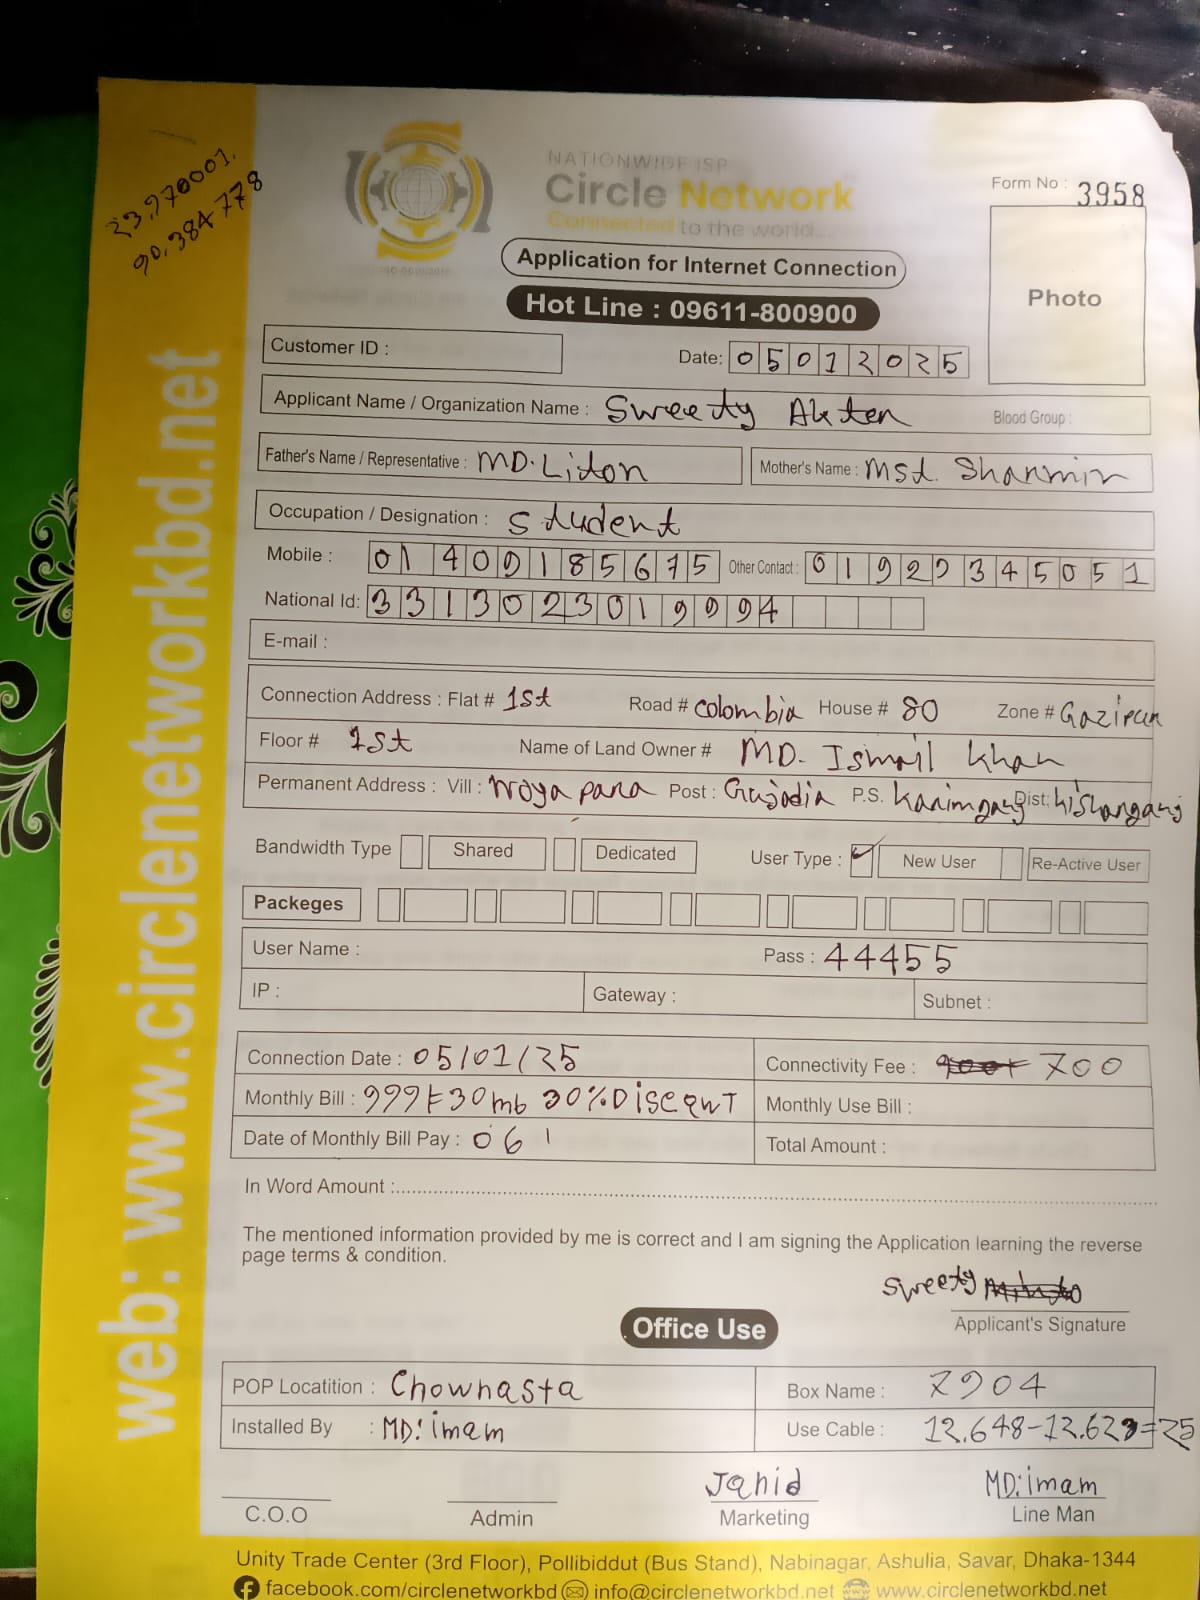 23.970001.
90.384778
NATIONWIDE ISP
Circle Network
Connected to the world...
Form No : 3958
Application for Internet Connection
Hot Line : 09611-800900
Photo
Customer ID :
Date: 05012025
Applicant Name / Organization Name : Sweety Akter Blood Group :
Father's Name / Representative : MD. Liton Mother's Name : Mst. Sharmin
Occupation / Designation : Student
Mobile : 01409185675 Other Contact : 01929345051
National Id: 3313023019994
E-mail :
Connection Address : Flat # 1st Road # Colombia House # 80 Zone # Gazipur
Floor # 1st Name of Land Owner # MD. Ismail Khan
Permanent Address : Vill : Noyapara Post : Gujadia P.S. Karimganj Dist: kishorganj
Bandwidth Type Shared Dedicated User Type : ✓ New User Re-Active User
Packeges
User Name : Pass : 44455
IP : Gateway : Subnet :
Connection Date : 05/01/25 Connectivity Fee : 700
Monthly Bill : 999৳ 30mb 30% Discount Monthly Use Bill :
Date of Monthly Bill Pay : 06 Total Amount :
In Word Amount :
The mentioned information provided by me is correct and I am signing the Application learning the reverse
page terms & condition.
Sweety
Applicant's Signature
Office Use
POP Locatition : Chowrasta Box Name : 7904
Installed By : MD: imam Use Cable : 12.648-12.623=25
Jahid MD: imam
C.O.O Admin Marketing Line Man
Unity Trade Center (3rd Floor), Pollibiddut (Bus Stand), Nabinagar, Ashulia, Savar, Dhaka-1344
facebook.com/circlenetworkbd info@circlenetworkbd.net www.circlenetworkbd.net
web: www.circlenetworkbd.net